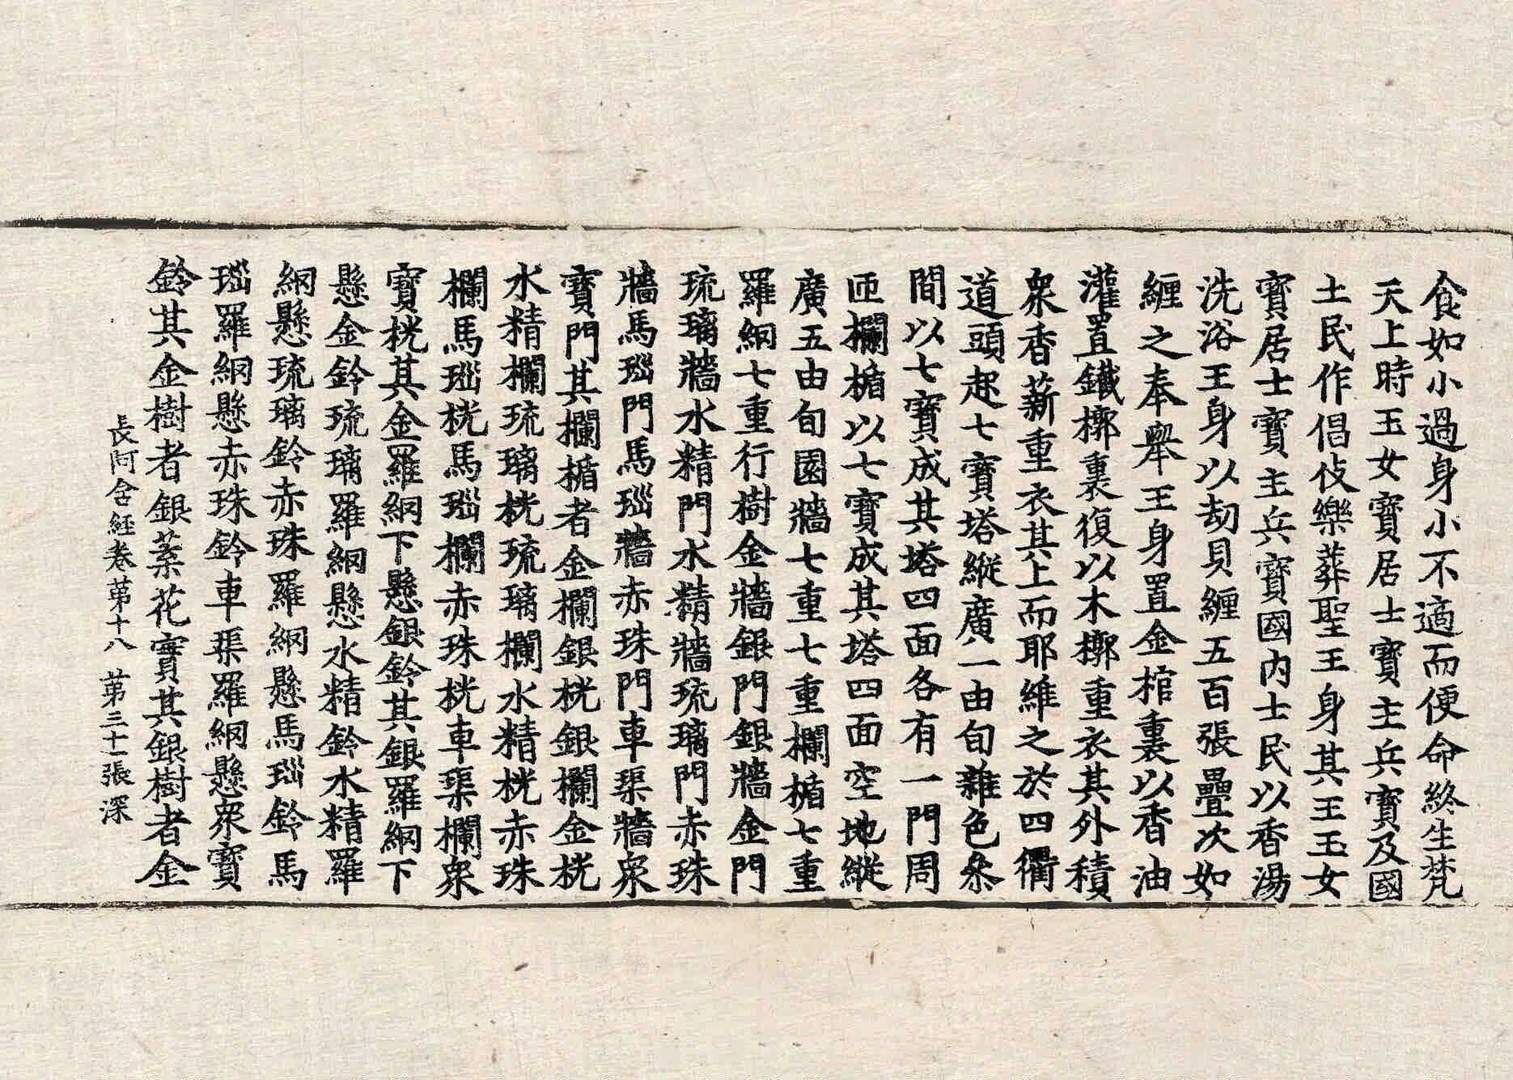 食如小過身小不適而便命終生梵
天上時玉女寶居士寶主兵寶及國
土民作倡伎樂葬聖王身其王玉女
寶居士寶主兵寶國內士民以香湯
洗浴王身以劫貝纏五百張疊次如
纏之奉舉王身置金棺裏以香油
灌置鐵槨裏復以木槨重衣其外積
衆香薪重衣其上而耶維之於四衢
道頭起七寶塔縱廣一由旬雜色叅
間以七寶成其塔四面各有一門周
匝欄楯以七寶成其塔四面空地縱
廣五由旬園牆七重七重欄楯七重
羅網七重行樹金牆銀門銀牆金門
琉璃牆水精門水精牆琉璃門赤珠
牆馬瑙門馬瑙牆赤珠門車渠牆衆
寶門其欄楯者金欄銀桄銀欄金桄
水精欄琉璃桄琉璃欄水精桄赤珠
欄馬瑙桄馬瑙欄赤珠桄車渠欄衆
寶桄其金羅網下懸銀鈴其銀羅網下
懸金鈴琉璃羅網懸水精鈴水精羅
網懸琉璃鈴赤珠羅網懸馬瑙鈴馬
瑙羅網懸赤珠鈴車渠羅網懸衆寶
鈴其金樹者銀葉花實其銀樹者金
長阿含經卷苐十八 苐三十一張 深